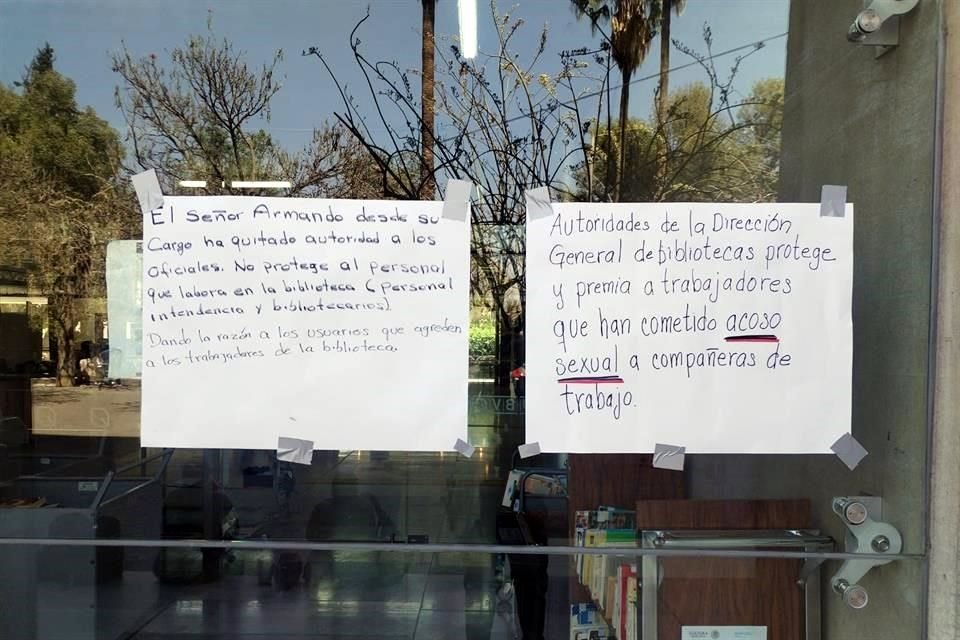 El Señor Armando desde su
Cargo ha quitado autoridad a los
oficiales. No protege al personal
que labora en la biblioteca (personal
intendencia y bibliotecarios)
Dando la razón a los usuarios que agreden
a los trabajadores de la biblioteca.
Autoridades de la Dirección
General de bibliotecas protege
y premia a trabajadores
que han cometido acoso
sexual a compañeras de
trabajo.
CULTURA